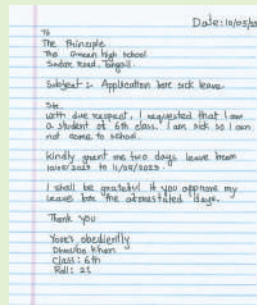 Date: 10/05/
To
The Principle
The Green high school
Sadar Road, Tangail
Subject :- Application for sick leave.
Sir
With due respect, I requested that I am
a student of 6th class. I am sick so I can
not come to school.
Kindly grant me two days leave from
10/05/2023 to 11/05/2023.
I shall be grateful if you approve my
leave for the days.
Thank you
Yours obediently
Khan
Class: 6th
Roll: 21